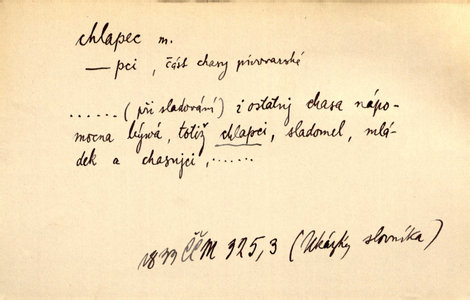 chlapec m.
— pci, část chasy pivovarské
......(při sladování) i ostatnj chasa nápo-
mocna bývá, totiž chlapci, sladomel, mlá-
dek a chasnjci,.......
1839 ČČM 325,3 (Ukázky slovníka)